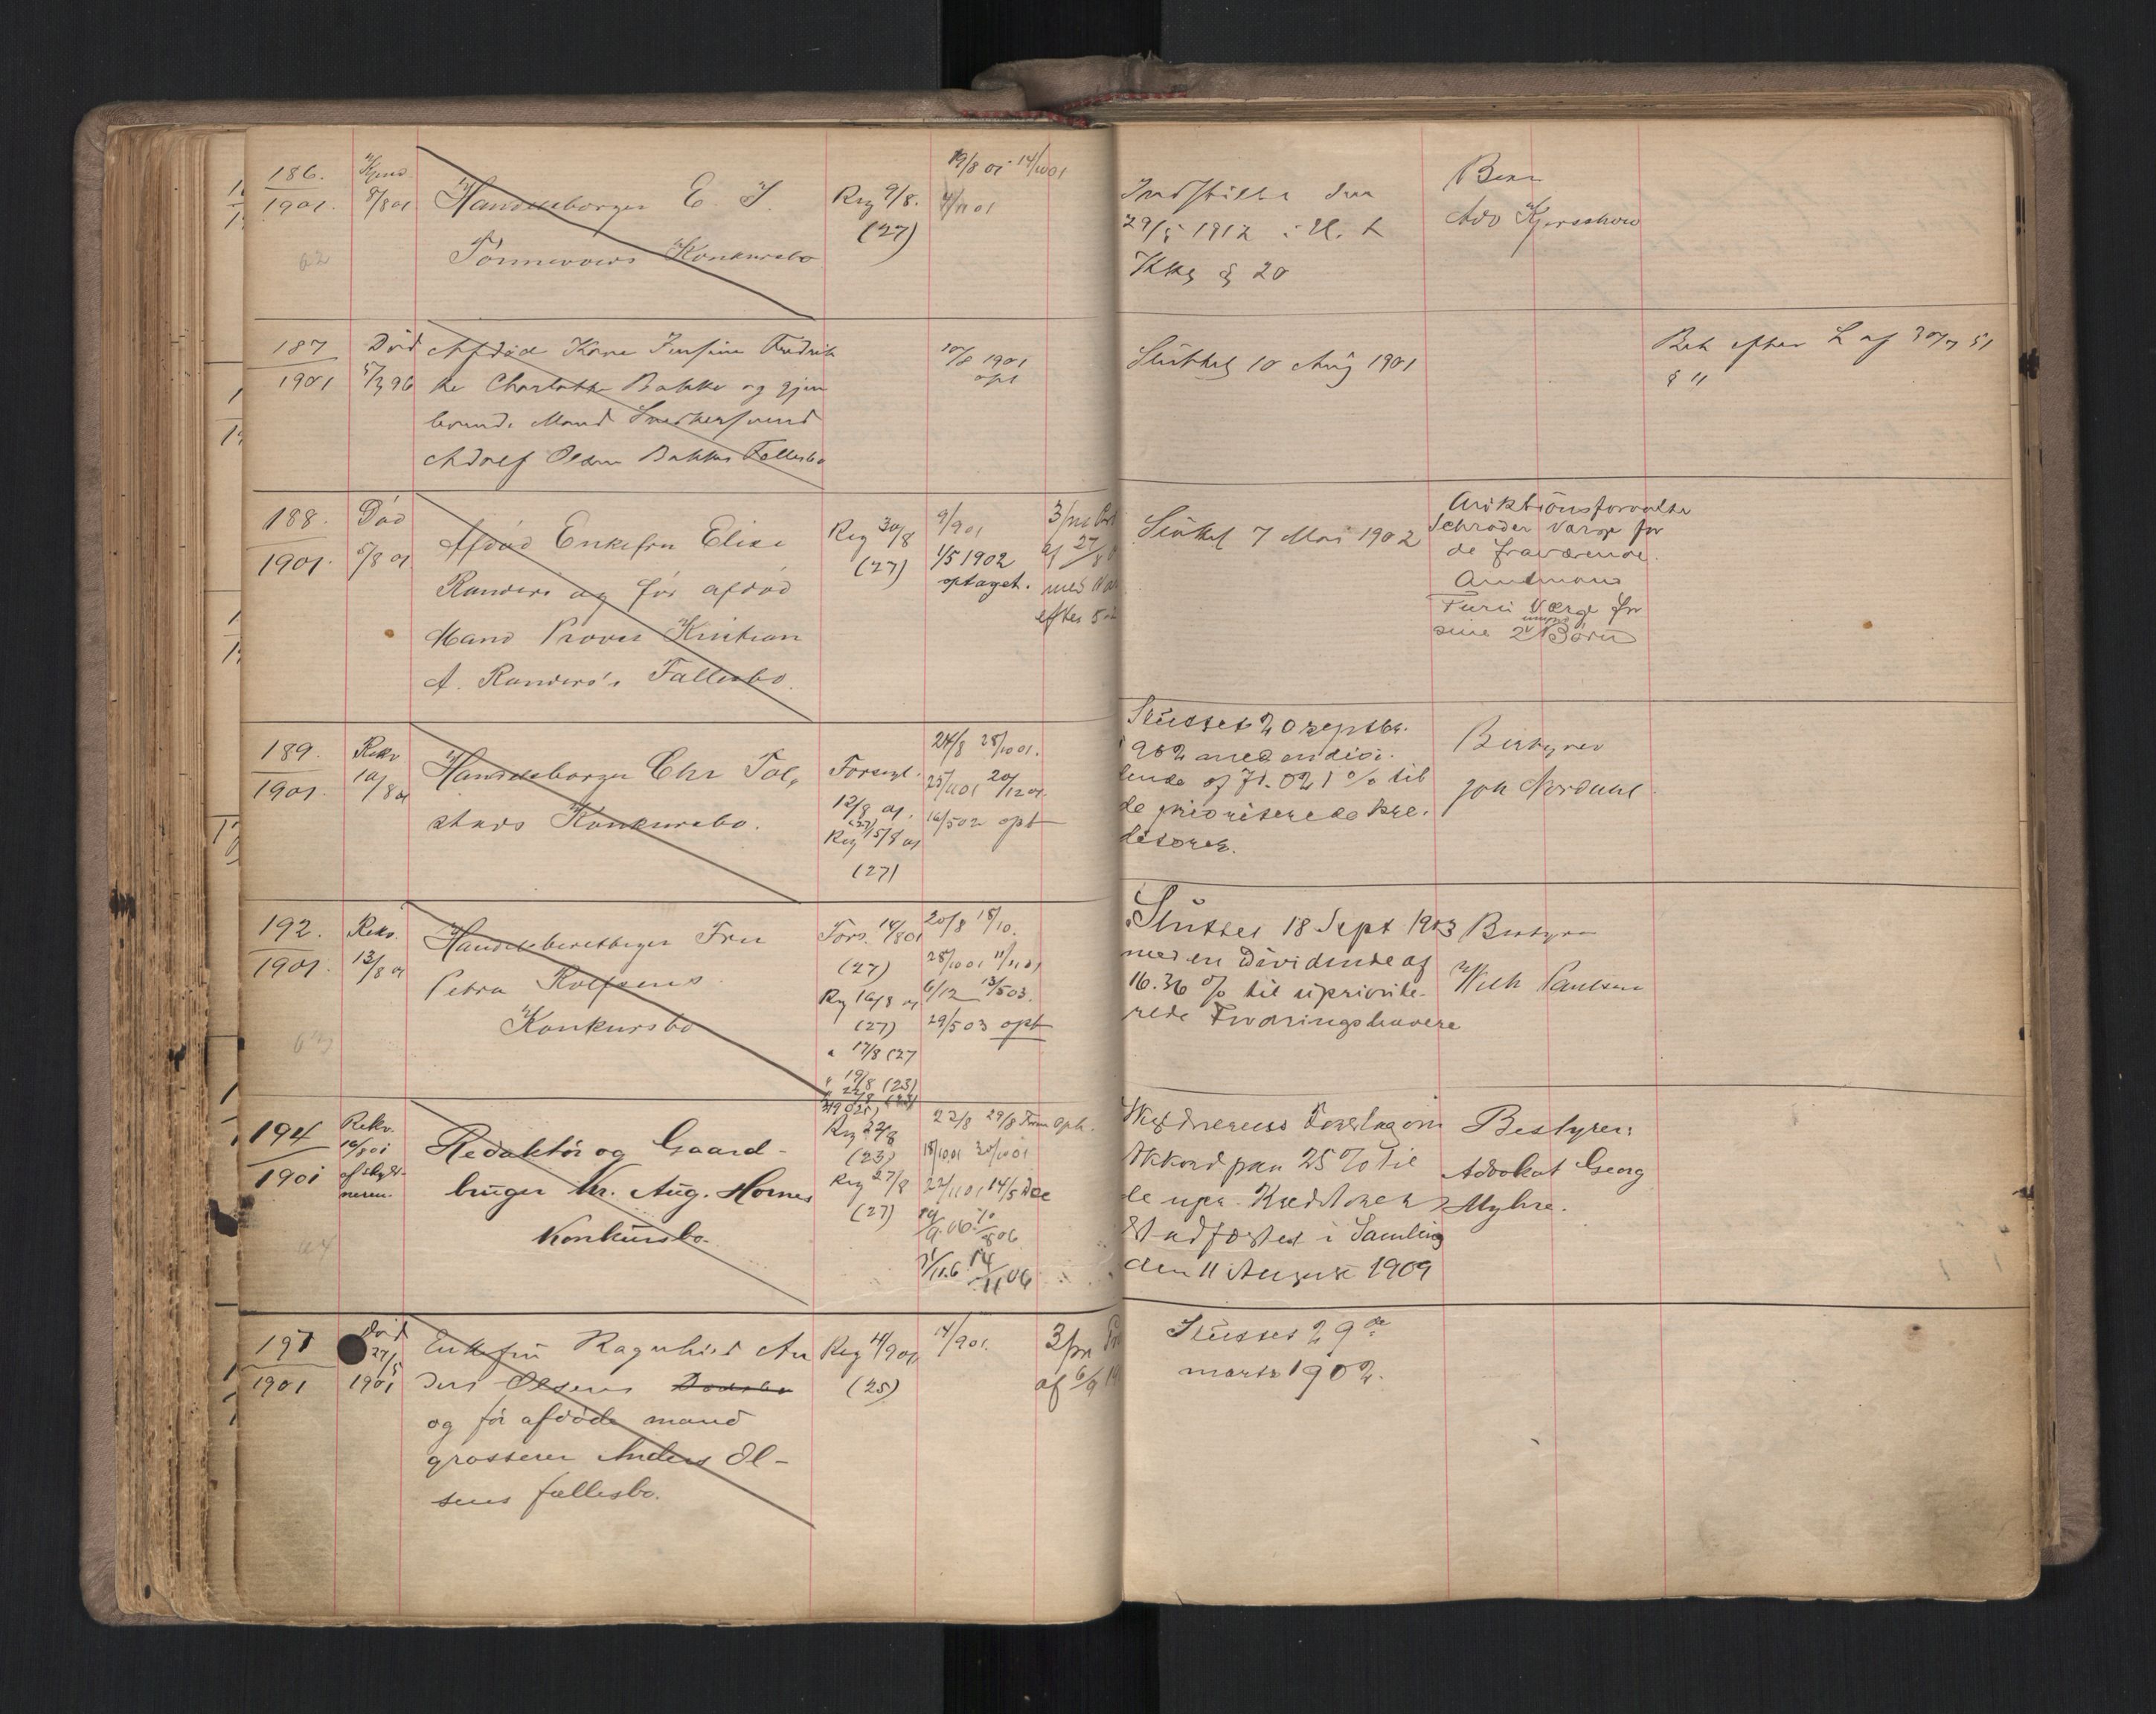 186.
1901.
8/8 01
Handelsborger E. J.
Tönnevoers Konkursbo
Reg 9/8.
(27)
19/8 01 14/10 01
4/11 01
Indstillet den
29/5 1912 i H. t
Kkl § 20
Best
Adv Kjerschow
62
187
1901
Död
5/3 96
Afdöde Kone Jensine Fredrik
ke Charlotte Bakke og gjen
levende Mand Snedkersvend
Adolf Olsen Bakkes Fællesbo
10/8 1901
opt
Sluttet 10 Aug 1901
Beh efter L af 30/7 51
§ 11
188.
1901.
Död
5/8 01
Afdöd Enkefru Elise
Randers og før afdöd
Mand Provst Kristian
A. Randers's Fællesbo.
Reg 30/8
(27)
9/9 01
1/5 1902
optaget.
3/m
af 27/8
med
efter
Sluttet 7 Mai 1902
Auktionsforvalter
Schröder Værge for
de fraværende.
Amtmand
Furu Værge for
sine 2 umynd Børn
189.
1901.
Rekv
10/8 01
Handelsborger Chr Tol,
stads Konkursbo.
Forsegl.
12/8 01.
(27)
Reg 15/8 01
(27)
24/8 28/10 01.
25/11 01 20/12 01.
16/5 02 opt
Sluttet 20 septbr.
1902 med en divi-
dende af 71.021 % til
de prioriterede kre-
ditorer.
Bestyrer
Joh Nordahl
192.
1901.
Rekv.
13/8 01
Handelsberettiget Fru
Petra Rolfsens
Konkursbo
Fors. 14/8 01
(27)
Reg 16/8 01
(27)
" 17/8 (27
" 19/8 (23)
" 22/8 (23)
20/8 18/10.
28/10 01 11/11 01
6/12 13/5 03.
29/5 03 opt
Sluttet 18 Sept 1903
med en Dividende af
16.36 % til uprioríte-
rede Fordringshavere
Bestyrer
Wilh Paulsen
63
194
1901
Rekv.
16/8 01
af skyld-
neren.
Redaktör og Gaard-
bruger Kr. Aug. Hornes
Konkursbo.
Reg 22/8
(23)
Reg 27/8
(27)
22/8 29/8 Frem Opt.
18/10 01 30/10 01
22/11 01 14/5
14/11 06
Akkord paa 25 % til
de upr. Kreditorer
Stadfæstet i Samling
den 11 August 1909
Bestyrer:
Advokat Georg
Myhre.
64
197
1901
Död
27/5
1901
Enkefru Ragnhild An
ders Olsens Dödsbo
og før afdöde mand
grosserer Anders Ol-
sens fællesbo.
Reg 4/9 01
(25)
14/9 01.
3/m
af 6/9
Sluttet 29de
marts 1902.